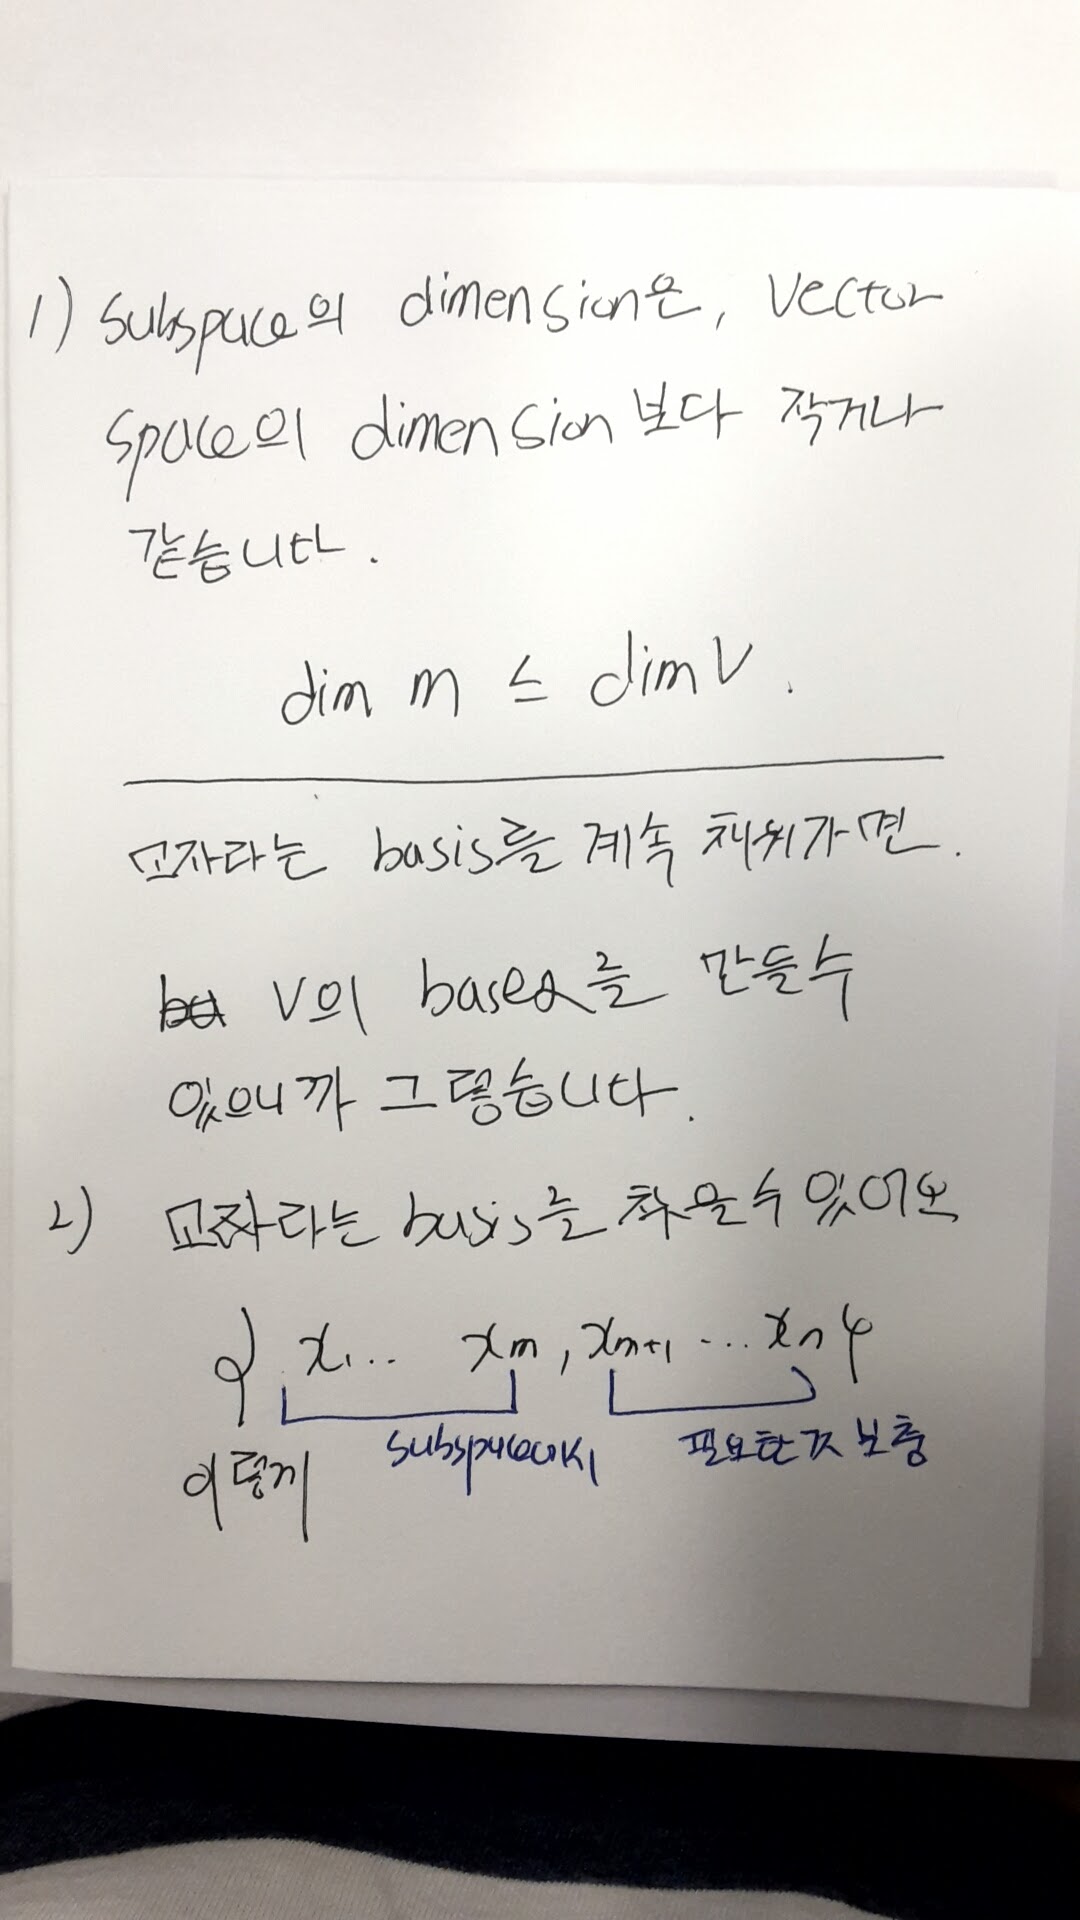 1) subspace의 dimension은, vector
space의 dimension보다 작거나
같습니다.
dim m ≤ dim V.
모자라는 basis를 계속 채워가면.
V의 bases를 만들수
있으니까 그렇습니다.
2) 모자라는 basis를 찾을수 있어요
{ x₁... xₘ, xₘ₊₁ ... xₙ }
subspace에서 필요한것 보충
이렇게